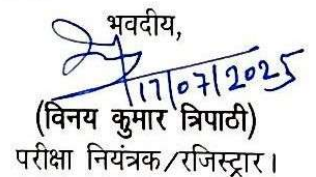 भवदीय,
17/07/2025
(विनय कुमार त्रिपाठी)
परीक्षा नियंत्रक/रजिस्ट्रार।